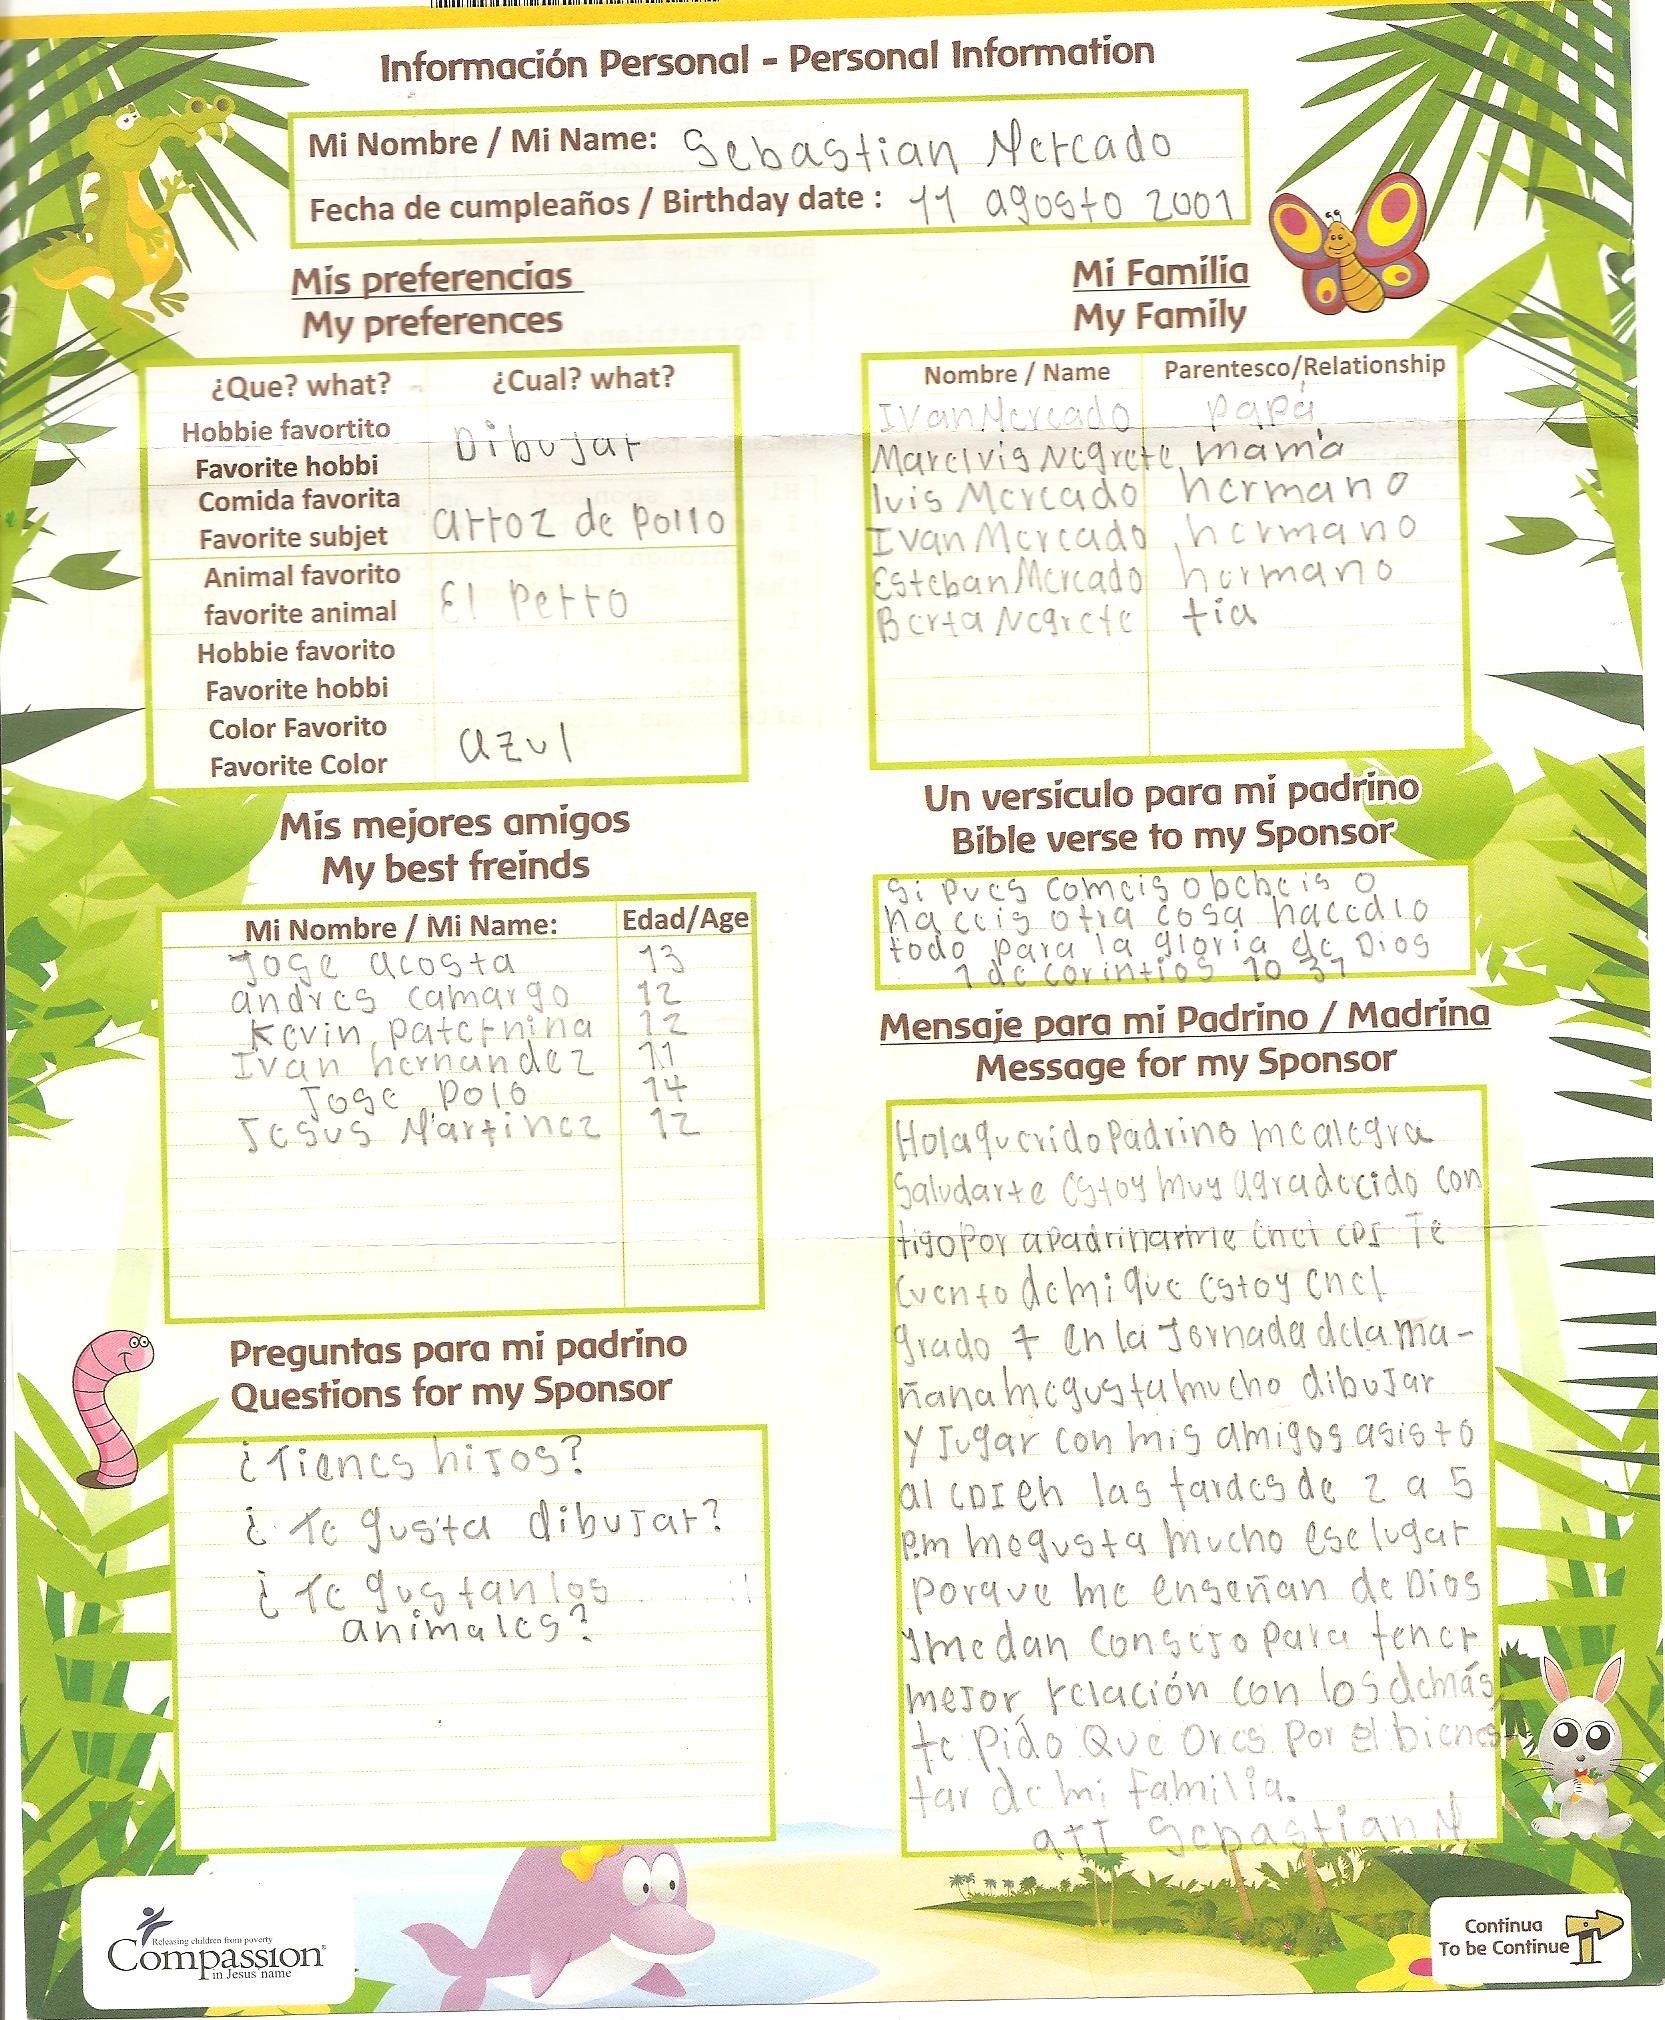 Información Personal - Personal Information
Mi Nombre / Mi Name: Sebastian Mercado
Fecha de cumpleaños / Birthday date : 11 agosto 2001
Mis preferencias
My preferences
¿Que? what? ¿Cual? what?
Hobbie favortito
Favorite hobbi
Dibujar
Comida favorita
Favorite subjet
arroz de pollo
Animal favorito
favorite animal
El Perro
Hobbie favorito
Favorite hobbi
Color Favorito
Favorite Color
azul
Mi Familia
My Family
Nombre / Name Parentesco/Relationship
Ivan Mercado papá
Marelvis Negrete mamá
luis Mercado hermano
Ivan Mercado hermano
Esteban Mercado hermano
Berta Negrete tia
Mis mejores amigos
My best freinds
Mi Nombre / Mi Name: Edad/Age
Jose acosta 13
andres camargo 12
Kevin paternina 12
Ivan hernandez 11
Jose Polo 14
Jesus Martinez 12
Un versiculo para mi padrino
Bible verse to my Sponsor
Si pues comeis o bebeis o
haceis otra cosa hacedlo
todo para la gloria de Dios
1 de corintios 10 31
Preguntas para mi padrino
Questions for my Sponsor
¿Tienes hijos?
¿Te gusta dibujar?
¿Te gustan los
animales?
Mensaje para mi Padrino / Madrina
Message for my Sponsor
Hola querido Padrino me alegra
Saludarte estoy muy agradecido con
tigo por apadrinarme en el CDI Te
Cuento de mi que estoy en el
grado 7 en la Jornada de la ma-
ñana me gusta mucho dibujar
y Jugar con mis amigos asisto
al CDI en las tardes de 2 a 5
p.m me gusta mucho ese lugar
porque me enseñan de Dios
y me dan consejo para tener
mejor relación con los demás
te pido que ores por el bienes
tar de mi familia.
ATT Sebastian M
Releasing children from poverty
Compassion®
in Jesus' name
Continua
To be Continue